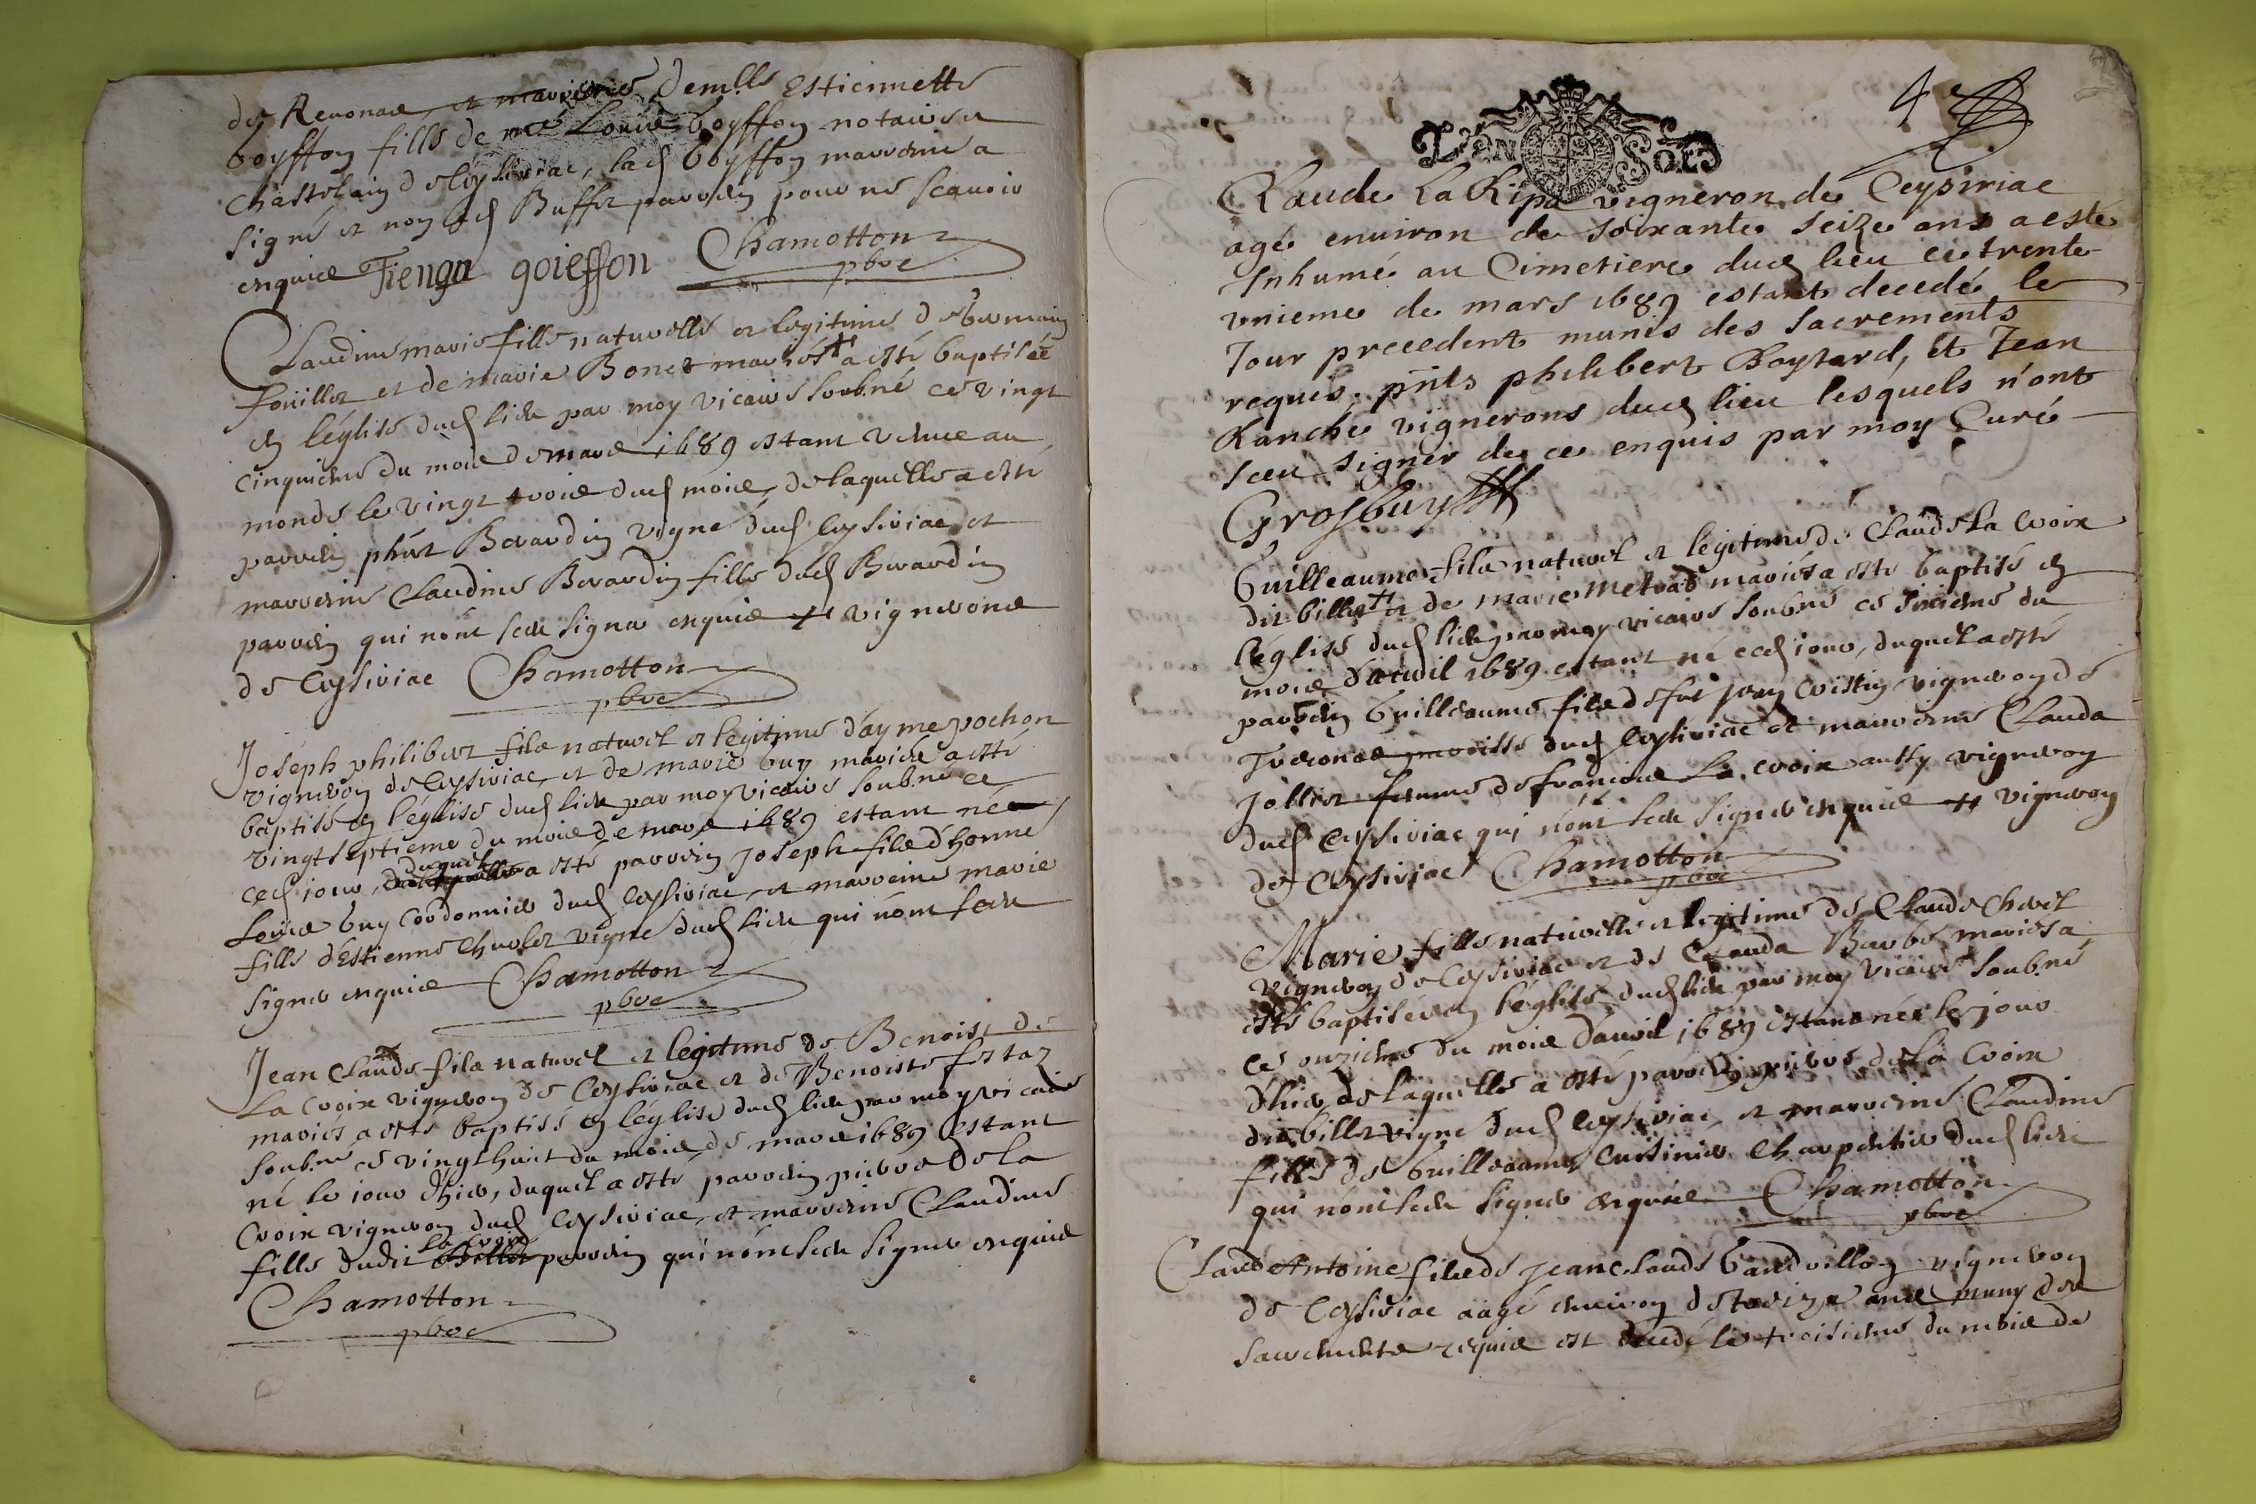 de Reuonas, et marreine demlle Estiennette
Goyffon fille de me Louis Goyffon notaire et
Chastelain de Ceysiriac, lad Goyffon marreine a
signé et non led Buffet parrein pour ne scauoir
enquis Tienga goieffon Chamotton
pbre
Claudine marie fille naturelle et legitime de Germain
foüillet et de marie Bonet mariés a esté baptisée
en léglise dud lieu par moy vicaire soubné ce vingt
cinquieme du mois de mars 1689 estant venue au
monde le vingt trois dud mois, de laquelle a esté
parrein phért Berardin vigne dud Ceysiriac et
marreine Claudine Berardin fille dud Berardin
parrein qui nónt sceu signer enquis # vignerons
de Ceysiriac Chamotton
pbre
Joseph philibert fils naturel et legitime dáyme pochon
vigneron de Ceysiriac, et de marie Guy mariés a esté
baptisé en léglise dud lieu par moy vicaire soubné ce
vingt septieme du mois de mars 1689 estant né
ced iour, duquel a esté parrein Joseph fils dhonne
Loüis Guy Cordonnier dud Ceysiriac, et marreine marie
fille dEstienne Chuolet vigne dud lieu qui nónt sceu
signer enquis Chamotton
pbre
Jean Claude fils naturel et legitime de Benoist de
La Croix vigneron de Ceysiriac et de Benoiste
mariés a esté baptisé en léglise dud lieu par moy vicaire
soubné ce vingt huit du mois de mars 1689 estant
né le iour d'hier, duquel a esté parrein pierre de la
Croix vigneron dud Ceysiriac, et marreine Claudine
La Croix
fille dudit Billet parrein qui nónt sceu signer enquis
Chamotton
pbre
4e
Un Sol
Claude La Ripa vigneron de Ceysiriac
agé enuiron de soixante seize ans a esté
Inhumé au Cimetiere dud lieu ce trente
vnieme de mars 1689 estant decedé le
Jour precedent munis des sacrements
requis. pnts philibert Chaytard, et Jean
Ranché vignerons dud lieu lesquels n'ont
sceu signer de ce enquis par moy Curé
Grosbuy
Guilleaume fils naturel et legitime de Claude La Croix
dit billet # et de marie Metras mariés a esté baptisé en
léglise dud lieu par moy vicaire soubné ce sixieme du
mois dauril 1689 estant né ced iour, duquel a esté
parrein Guilleaume fils de fut Jean vigneron de
Treconas parroisse dud Ceysiriac et marreine Clauda
Jollier femme de francois La Croix aussy vigneron
dud Ceysiriac qui nónt sceu signer enquis # vigneron
de Ceysiriac Chamotton
pbre
Marie fille naturelle et legitime de Claude
vigneron de Ceysiriac et de Clauda Barbe mariés a
esté baptisée en léglise dud lieu par moy vicaire soubné
ce onzieme du mois dauril 1689 estant née le jour
d'hier de laquelle a esté parrein pierre de la Croix
dit billet vigne dud Ceysiriac, et marreine Claudine
fille de Guilleaume Cuisinier Charpentier dud lieu
qui nónt sceu signer enquis Chamotton
pbre
Claude Antoine fils de Jean Claude vigneron
de Ceysiriac aagé enuiron de treize ans muny des
sacrements requis est decedé le troisieme du mois de